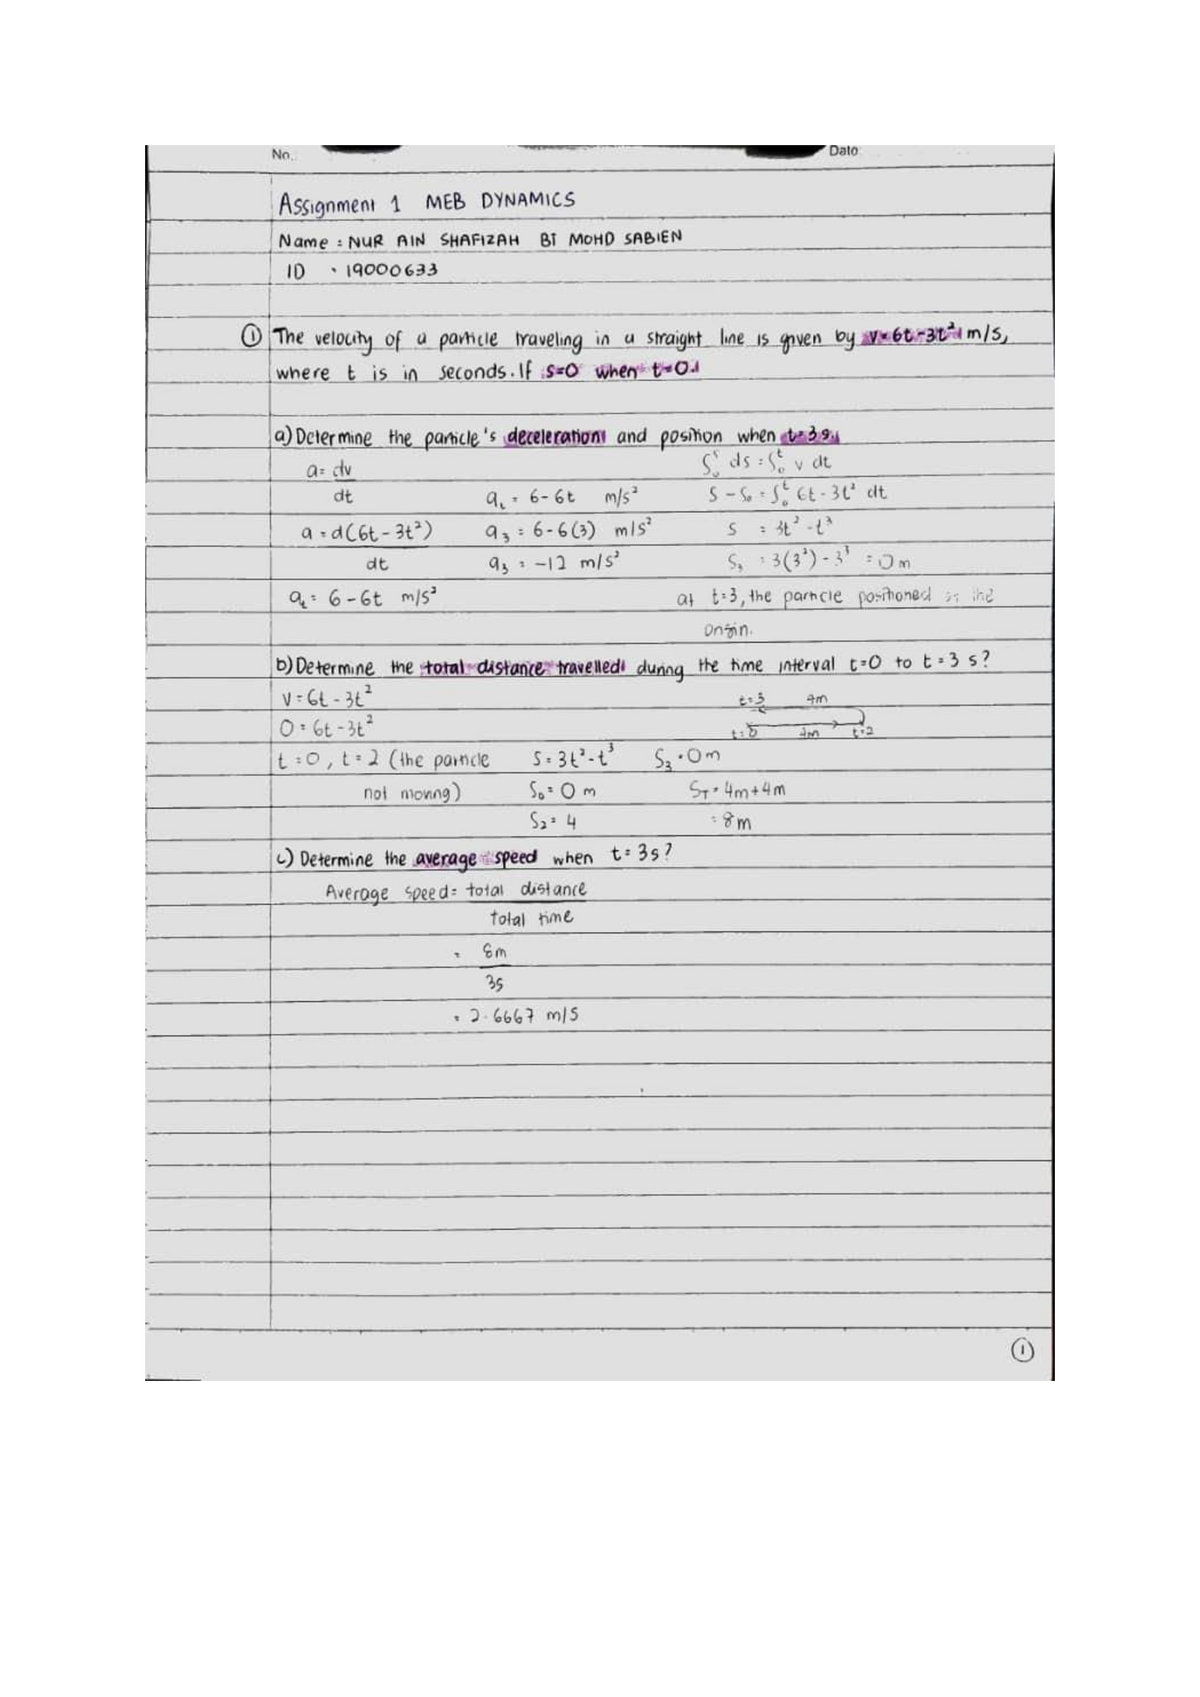 No.
Date
Assignment 1 MEB DYNAMICS
Name : NUR AIN SHAFIZAH BT MOHD SABIEN
ID : 19000633
① The velocity of a particle traveling in a straight line is given by v=6t-3t² m/s,
where t is in seconds. If s=0 when t=0.
a) Determine the particle's deceleration and position when t=3s.
a= dv
dt
∫₀ˢ ds = ∫₀ᵗ v dt
aₜ = 6-6t m/s²
S-S₀ = ∫₀ᵗ 6t-3t² dt
a = d(6t-3t²)
dt
a₃ = 6-6(3) m/s²
S = 3t²-t³
a₃ = -12 m/s²
S₃ = 3(3²)-3³ = 0m
aₜ = 6-6t m/s²
at t=3, the particle positioned the
origin.
b) Determine the total distance travelled during the time interval t=0 to t=3 s?
v=6t-3t²
t=3 4m
0=6t-3t²
t=0 4m t=2
t=0, t=2 (the particle
not moving)
S=3t²-t³ S₃=0m
S₀=0m Sᴛ=4m+4m
S₂=4 =8m
c) Determine the average speed when t=3s?
Average speed = total distance
total time
= 8m
3s
= 2.6667 m/s
①